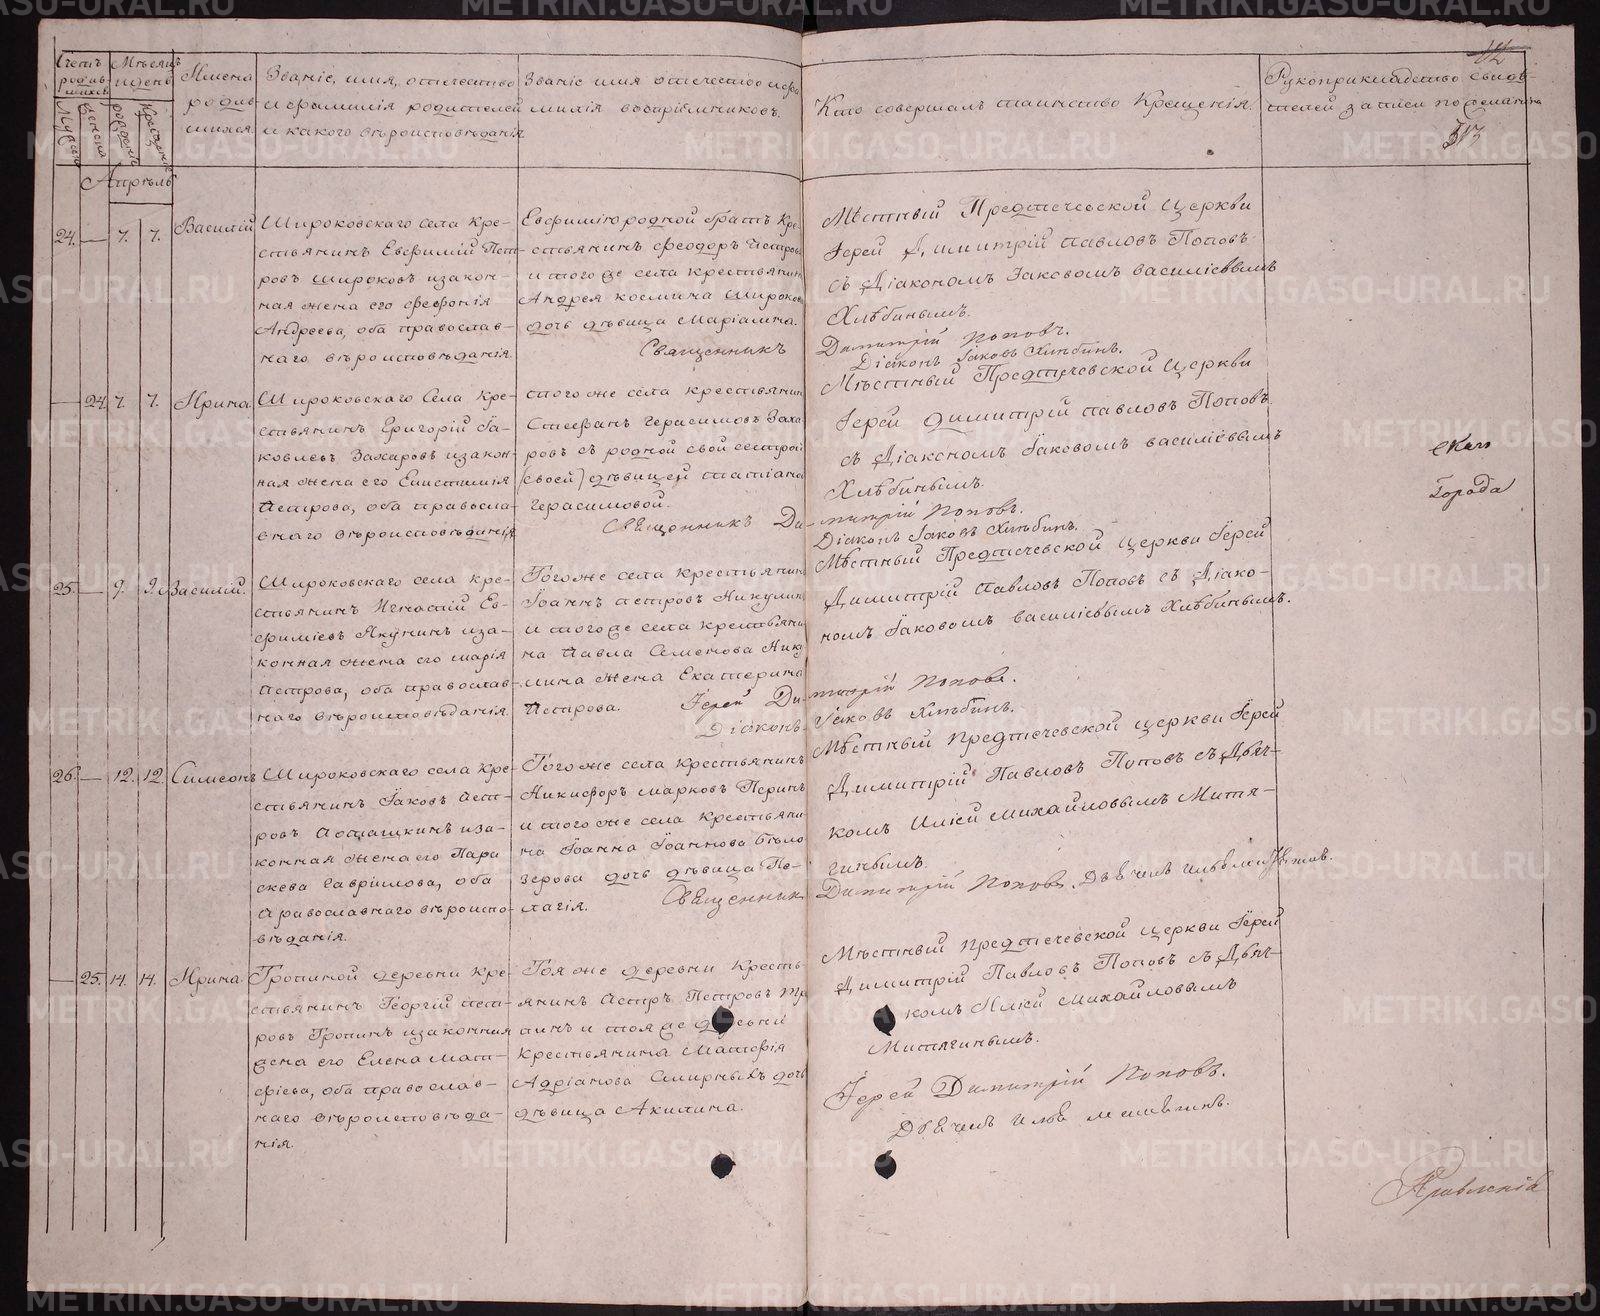 Счетъ родив-шихся
Мѣсяцъ и день
Имена родив-шихся
Званіе, имя, отечество
и фамилія родителей
и какого вѣроисповѣданія
Званіе имя отечество и фа-
милія воспріѣмниковъ.
Кто совершалъ таинство Крещенія.
Рукоприкладство свидѣ-
телей записи по желанію
12
513
Мужска
Женска
рожденія
Крещенія
Апрѣль
24. — 7. 7. Василій
Широковскаго села кре-
стьянинъ Евфимій Пет-
ровъ Широковъ изакон-
ная жена его Феофонія
Андреева, оба православ-
наго вѣроисповѣданія.
Евфимію родной братъ кре-
стьянинъ Феодоръ Петровъ
и того же села крестьянина
Андрея Космина Широкова
дочь дѣвица Маріамна.
Священникъ
Мѣстный Предтечевской Церкви
Іерей Димитрій Павловъ Поповъ
съ Діакономъ Іаковомъ Василіевымъ
Хлѣбинымъ.
Димитрій Поповъ.
Діаконъ Іаковъ Хлѣбинъ.
— 24 7. 7. Ирина
Широковскаго Села кре-
стьянинъ Григорій Іа-
ковлевъ Захаровъ изакон-
ная жена его Епистимія
Петрова, оба правосла-
внаго вѣроисповѣданія
того же села крестьянинъ
Стефанъ Герасимовъ Заха-
ровъ съ родной свой сестрой
(своей) дѣвицей Татіаной
Герасимовой.
Священникъ Ди-
Мѣстный Предтечевской Церкви
Іерей Димитрій Павловъ Поповъ
съ Діакономъ Іаковомъ Василіевымъ
Хлѣбинымъ.
митрій Поповъ.
Діаконъ Іаковъ Хлѣбинъ.
скаго
Города
25. — 9. 9. Василій.
Широковскаго села кре-
стьянинъ Игнатій Ев-
фиміевъ Якунинъ иза-
конная жена его Марія
Петрова, оба православ-
наго вѣроисповѣданія.
Того же села крестьянинъ
Іоаннъ Петровъ Никулин
и того же села крестьяни-
на Павла Семенова Нику-
лина жена Екатерина
Петрова. Іерей Ди-
Діаконъ
Мѣстный Предтечевской Церкви Іерей
Димитрій Павловъ Поповъ съ Діако-
номъ Іаковомъ Василіевымъ Хлѣбинымъ.
митрій Поповъ.
Іаковъ Хлѣбинъ.
26. — 12. 12. Симеонъ
Широковскаго села кре-
стьянинъ Іаковъ Пет-
ровъ иза-
конная жена его Пара
скева Гаврилова, оба
православнаго вѣроиспо-
вѣданія.
Того же села крестьянинъ
Никифоръ Марковъ Перинъ
и того же села крестьяни-
на Іоанна Іоаннова Бѣло-
зерова дочь дѣвица Пе-
лагія. Священник
Мѣстный Предтечевской Церкви Іерей
Димитрій Павловъ Поповъ съ Дьяч-
комъ Иліей Михайловымъ Митя-
гинымъ.
Димитрій Поповъ. Дьячекъ Илья
— 25. 14. 14. Ирина
Тропиной деревни кре-
стьянинъ Георгій Пет-
ровъ Тропинъ изаконная
жена его Елена Мат-
фіева, оба православ-
наго вѣроисповѣда-
нія.
Тоя же деревни кресть-
янинъ Петръ Петровъ Тро
пинъ и тоя же деревни
крестьянина Матфія
Адріанова Смирныхъ дочь
дѣвица Акилина.
Мѣстный Предтечевской Церкви Іерей
Димитрій Павловъ Поповъ съ Дьяч-
комъ Иліей Михайловымъ
Митягинымъ.
Іерей Димитрій Поповъ.
Дьячекъ Илья Митягинъ.
Правленія
METRIKI.GASO-URAL.RU